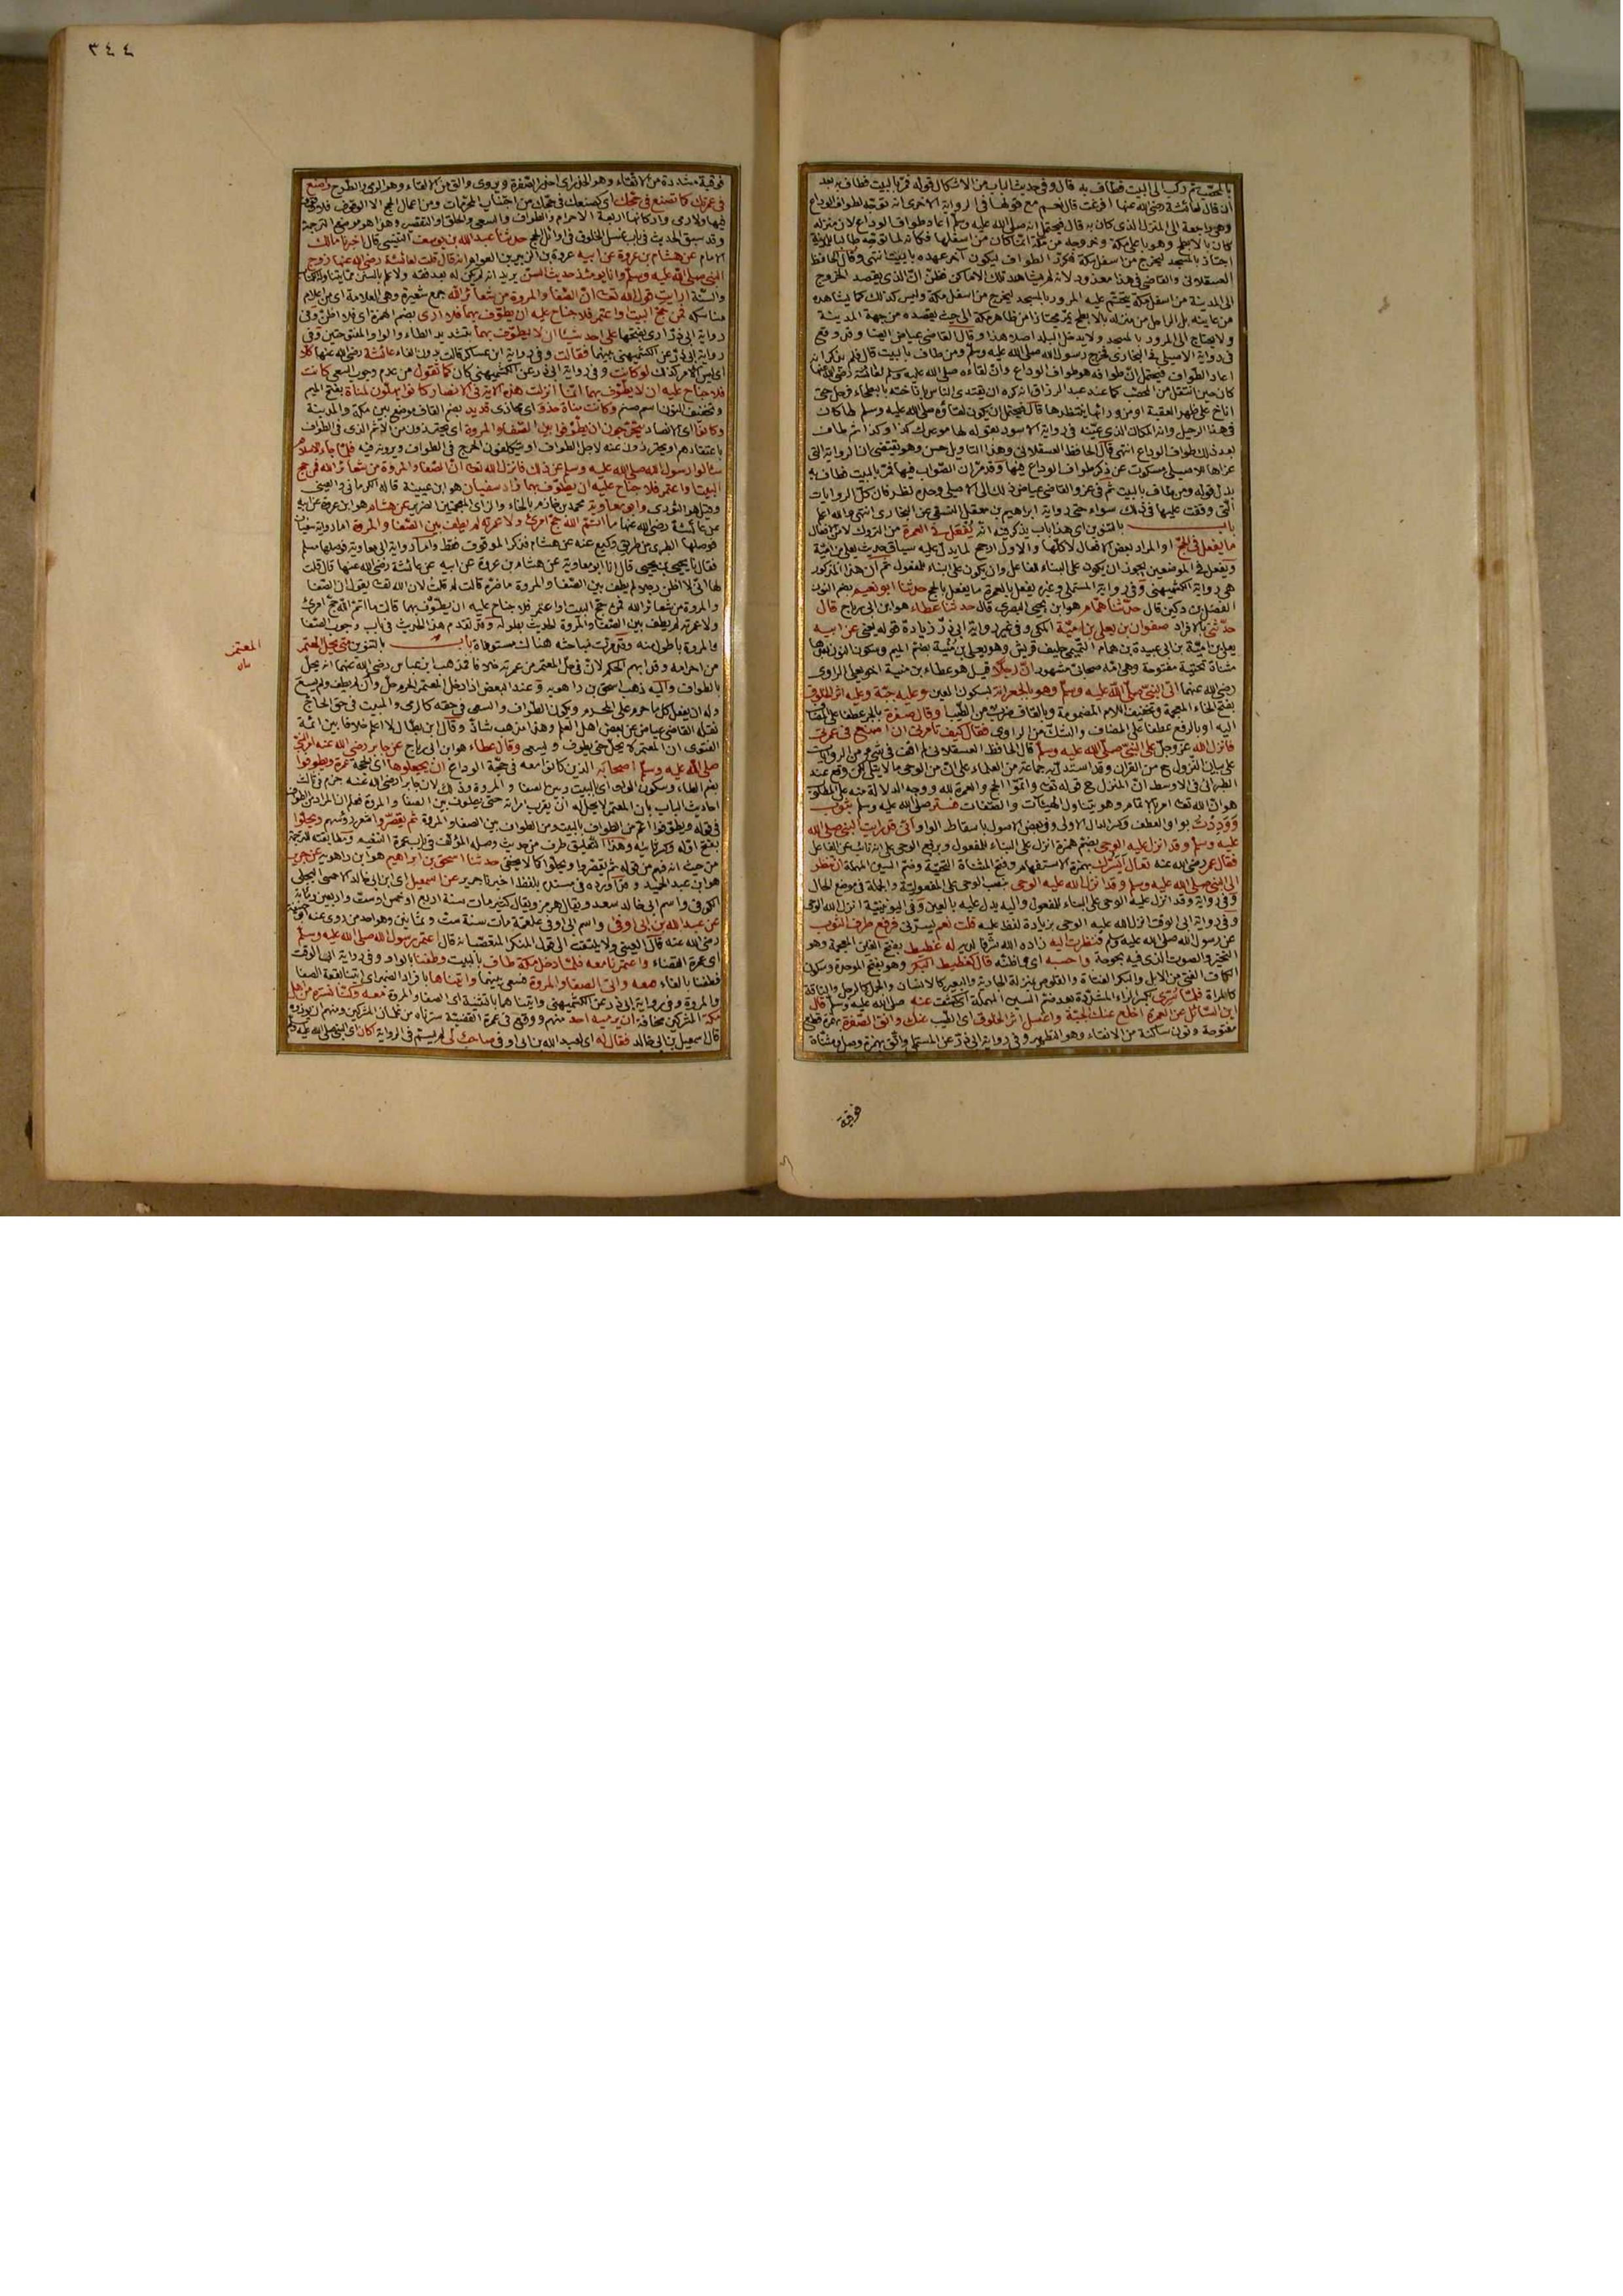 بالمحصّب ثم ركب الى البيت فطاف به قال وفى حديث الباب من الاشكال قوله فمرّ بالبيت فطاف به بعد
ان قال لعائشة رضى الله عنها افرغت قالت نعم مع قولها فى الرواية الاخرى انه توجه لطواف الوداع
وهى راجعة الى المنزل الذى كان به قال فيحتمل انه صلى الله عليه وسلم اعاد طواف الوداع لان منزله
كان بالابطح وهو باعلى مكة وخروجه من مكة انما كان من اسفلها فكانه لما توجه طالبا للمدينة
اجتاز بالمسجد ليخرج من اسفل مكة فكرّر الطواف ليكون آخر عهده بالبيت انتهى وقال الحافظ
العسقلانى والقاضى فى هذا معذور لانه لم يشاهد تلك الاماكن فظنّ انّ الذى يقصد الخروج
الى المدينة من اسفل مكة يتحتم عليه المرور بالمسجد ليخرج من اسفل مكة وليس كذلك كما يشاهده
من عاينه بل الراحل من منزله بالابطح يمرّ مجتازا من ظاهر مكة الى حيث يقصده من جهة المدينة
ولا يحتاج الى المرور بالمسجد ولا يدخل البلد اصلا هذا وقال القاضى عياض ايضا وقد وقع
فى رواية الاصيلى فى البخارى فخرج رسول الله صلى الله عليه وسلم ومن طاف بالبيت قال فلم يذكر انه
اعاد الطواف فيحتمل انّ طوافه هو طواف الوداع وانّ لقاءه صلى الله عليه وسلم لعائشة رضى الله عنها
كان حين انتقل من المحصّب كما عند عبد الرزاق انه كره ان يقتدى الناس باناخته بالبطحاء فرحل حتى
اناخ على ظهر العقبة او من ورائها ينتظرها قال فيحتمل ان يكون لقاؤه صلى الله عليه وسلم لها كان
فى هذا الرحيل وانه المكان الذى عيّنه فى رواية الاسود بقوله لها موعدك كذا وكذا ثم طاف
بعد ذلك طواف الوداع انتهى قال الحافظ العسقلانى وهذا التاويل حسن وهو يقتضى ان الرواية التى
عزاها للاصيلى مسكوت عن ذكر طواف الوداع فيها وقد مرّ ان الصواب فيها فمرّ بالبيت فطاف به
بدل قوله ومن طاف بالبيت ثم فى عزو القاضى عياض ذلك الى الاصيلى وحده نظر فان كلّ الروايات
التى وقفت عليها فى ذلك سواء حتى رواية ابراهيم بن معقل النسفى عن البخارى انتهى والله اعلم
باب بالتنوين اى هذا باب يذكر فيه انّه يُفعل فى العمرة من التروك لا من الافعال
ما يفعل فى الحجّ او المراد بعض الافعال لا كلّها والاول ارجح لما يدلّ عليه سياق حديث يعلى بن اميّة
ويفعل فى الموضعين يجوز ان يكون على البناء للفاعل وان يكون على البناء للمفعول ثم ان هذا المذكور
هى رواية الكشميهنى وفى رواية المستملى وغيره يفعل بالعمرة ما يفعل بالحج حدثنا ابو نعيم بضم النون
الفضل بن دكين قال حدّثنا همّام هو ابن يحيى البصرى قال حدثنا عطاء هو ابن ابى رباح قال
حدّثنى بالافراد صفوان بن يعلى بن اميّة المكى وفى غير رواية ابى ذرّ زيادة قوله يعنى عن ابيه
يعلى بن اميّة بن ابى عبيدة بن همام التّميمى حليف قريش وهو يعلى بن مُنية بضمّ الميم وسكون النون بعدها
مثناة تحتية مفتوحة وهى امّه صحابىّ مشهور انّ رجلا قيل هو عطاء بن منية اخو يعلى الراوى
رضى الله عنهما اتى النبىّ صلى الله عليه وسلم وهو بالجعرانة بسكون العين وعليه جبّة وعليه اثر الخلوق
بفتح الخاء المعجمة وتخفيف اللام المضمومة وبالقاف ضرب من الطيب او قال صفرة بالجر عطفا على المضاف
اليه او بالرفع عطفا على المضاف والشكّ من الراوى فقال كيف تامرنى ان اصنع فى عمرتى
فانزل الله عزّ وجلّ على النبىّ صلى الله عليه وسلم قال الحافظ العسقلانى لم اقف فى شىء من الروايات
على بيان المنزول ح من القران وقد استدل به جماعة من العلماء على انّ من الوحى ما لا يتلى لكن وقع عند
الطبرانى فى الاوسط انّ المنزل ح قوله تعالى واتمّوا الحج والعمرة لله ووجه الدلالة منه على المطلوب
هو انّ الله تعالى امر بالاتمام وهو يتناول الهيئات والصّفات فستر صلى الله عليه وسلم بثوب
ووددت بواو العطف وكسر الدال الاولى وفى بعض الاصول باسقاط الواو انى قد رايت النبى صلى الله
عليه وسلم وقد انزل عليه الوحى بضمّ همزة انزل على البناء للمفعول وبرفع الوحى على انه نائب عن الفاعل
فقال عمر رضى الله عنه تعال أيَسُرّك بهمزة الاستفهام وفتح المثناة التحتيّة وضمّ السين المهملة ان تنظر
الى النبى صلى الله عليه وسلم وقد انزل الله عليه الوحى بنصب الوحى على المفعوليّة والجملة فى موضع الحال
وفى رواية وقد انزل عليه الوحى على البناء للمفعول واليه يدل عليه بالعين وفى اليونينية انزل الله الوحى
وفى رواية ابى الوقت انزل الله عليه الوحى بزيادة لفظ عليه قلت نعم يسرّنى فرفع طرف الثوب
عن رسول الله صلى الله عليه وسلم فنظرت اليه زاده الله شرفا لديه له غطيط بفتح الغين المعجمة وهو
النخير والصوت الذى فيه بحوحة واحسبه اى اظنّه قال كغطيط البكر وهو بفتح الموحدة وسكون
الكاف الفتى من الابل والبكر الفتاة والقلوص بمنزلة الجارية والبعير كالانسان والجمل كالرجل والناقة
كالمراة فلمّا سُرّى بكسر الراء المشدّدة بعد ضمّ السين المهملة اى كشف عنه صلى الله عليه وسلم قال
اين السّائل عن العمرة اخلع عنك الجبّة واغسل اثر الخلوق اى الطّيب عنك وانق الصّفرة بهمزة قطع
مفتوحة ونون ساكنة من الانقاء وهو التطهير وفى رواية ابى ذرّ عن المستملى واتّق بهمزة وصل ومثنّاة
فوقية
٣٤٤
فوقية مشددة من الاتقاء وهو الحذر اى احذر الصفرة ويروى والق من الالقاء وهو الرمى والطرح واصنع
فى عمرتك كما تصنع فى حجّك اى كصنعك فى حجّك من اجتناب المحرّمات ومن اعمال الحج الا الوقوف فلا وقوف
فيها ولا رمى واركانها اربعة الاحرام والطواف والسعى والحلق او التقصير وهذا هو موضع الترجمة
وقد سبق الحديث فى باب غسل الخلوق فى اوائل الحج حدثنا عبد الله بن يوسف التنيسى قال اخبرنا مالك
الامام عن هشام بن عروة عن ابيه عروة بن الزبير بن العوام انه قال قلت لعائشة رضى الله عنها زوج
النبى صلى الله عليه وسلم وانا يومئذ حديث السنّ يريد انه لم يكن له بعد فقه ولا علم بالسنن
والسنّة ارايت قول الله تعالى انّ الصّفا والمروة من شعائر الله جمع شعيرة وهى العلامة اى من اعلام
مناسكه فمن حجّ البيت او اعتمر فلا جناح عليه ان يطّوّف بهما فلا اُرى بضم الهمزة اى فلا اظنّ وفى
رواية ابى ذرّ ارى بفتحها على احد شيئا ان لا يطوّف بهما بتشديد الطاء والواو المفتوحتين وفى
رواية ابى ذرّ عن الكشميهنى بينهما فقالت وفى رواية ابن عساكر قالت بدون الفاء عائشة رضى الله عنها كلا
اى ليس الامر كذلك لو كانت وفى رواية ابى ذر عن الكشميهنى كان كما تقول من عدم وجوب السعى كانت
فلا جناح عليه ان لا يطّوّف بهما انّما انزلت هذه الاية فى الانصار كانوا يهلّون لمناة بفتح الميم
وتخفيف النون اسم صنم وكانت مناة حذو اى محاذى قديد بضم القاف موضع بين مكة والمدينة
وكانوا اى الانصار يتحرّجون ان يطوّفوا بين الصّفا والمروة اى يحترزون من الاثم الذى فى الطواف
باعتقادهم او يحترزون عنه لاجل الطواف او يتكلّفون الحرج فى الطواف ويرونه فيه فلمّا جاء الاسلام
سألوا رسول الله صلى الله عليه وسلم عن ذلك فانزل الله تعالى انّ الصّفا والمروة من شعائر الله فمن حج
البيت او اعتمر فلا جناح عليه ان يطّوّف بهما زاد سفيان هو ابن عيينة قاله الكرمانى والعينى
وقيل هو الثورى وابو معاوية محمد بن خازم بالخاء والزاى المعجمتين الضرير عن هشام هو ابن عروة عن ابيه
عن عائشة رضى الله عنها ما اتمّ الله حجّ امرئ ولا عمرته لم يطف بين الصّفا والمروة اما رواية سفيان
فوصلها الطبرى من طريق وكيع عنه عن هشام فذكر الموقوف فقط واما رواية ابى معاوية فوصلها مسلم
فقال ثنا يحيى بن يحيى قال انا ابو معاوية عن هشام بن عروة عن ابيه عن عائشة رضى الله عنها قال قلت
لها انّى لا اظن رجلا لم يطف بين الصّفا والمروة ما ضرّه قالت لم قلت لان الله تعالى يقول ان الصّفا
والمروة من شعائر الله فمن حجّ البيت او اعتمر فلا جناح عليه ان يطّوّف بهما قالت ما اتمّ الله حجّ امرئ
ولا عمرته لم يطف بين الصّفا والمروة الحديث بطوله وقد تقدم هذا الحديث فى باب وجوب الصّفا
والمروة باطول منه وقد مرّت مباحثه هناك مستوفاة باب بالتنوين متى يحلّ المعتمر
من احرامه وقد ابهم الحكم لانّ فى حلّ المعتمر من عمرته خلافا فمذهب ابن عباس رضى الله عنهما انه يحل
بالطواف واليه ذهب اسحق بن راهويه وعند البعض اذا دخل المعتمر الحرم حلّ وان لم يطف ولم يسع
وله ان يفعل كل ما حرم على المحرم ويكون الطواف والسعى فى حقه كالرمى والمبيت فى حق الحاجّ
نقله القاضى عياض عن بعض اهل العلم وهذا مذهب شاذّ وقال ابن بطّال لا اعلم خلافا بين ائمة
الفتوى ان المعتمر لا يحلّ حتى يطوف ويسعى وقال عطاء هو ابن ابى رباح عن جابر رضى الله عنه امر النبىّ
صلى الله عليه وسلم اصحابه الذين كانوا معه فى حجّة الوداع ان يجعلوها اى الحجة عمرة ويطوفوا
بضم الطاء وسكون الواو اى بالبيت وبين الصفا والمروة وذلك لان جابرا رضى الله عنه جزم فى ثالث
احاديث الباب بان المعتمر لا يحلّ له ان يقرب امراته حتى يطوف بين الصفا والمروة فعلم ان المراد من الطواف
فى قوله ويطوفوا اعمّ من الطواف بالبيت ومن الطواف بين الصفا والمروة ثم يقصّروا شعر رؤسهم ويحلّوا
بفتح اوّله وكسر ثانيه وهذا التعليق طرف من حديث وصله المؤلف فى باب عمرة التنعيم ومطابقته للترجمة
من حيث انه فهم من قوله ثم يقصّروا ويحلّوا كما لا يخفى حدثنا اسحق بن ابراهيم هو ابن راهويه عن جرير
هو ابن عبد الحميد وقد اورده فى مسنده بلفظ اخبرنا جرير عن اسمعيل اى ابن ابى خالد الاحمسى البجلى
الكوفى واسم ابى خالد سعد ويقال هرمز ويقال كثير مات سنة اربع او خمس او ست واربعين ومائة
عن عبد الله بن ابى اوفى واسم ابى اوفى علقمة مات سنة ست وثمانين وهو احد من روى عنه ابو حنيفة
رضى الله عنه قال العينى ولا يلتفت الى قول المنكر المتعصّب انه قال اعتمر رسول الله صلى الله عليه وسلم
اى عمرة القضاء واعتمرنا معه فلمّا دخل مكة طاف بالبيت وطفنا بالواو وفى رواية ابى الوقت
فطفنا بالفاء معه واتى الصفا والمروة فسعى بينهما واتيناها بافراد الضمير اى اتينا بقعة الصفا
والمروة وفى رواية ابى ذر عن الكشميهنى واتيناهما بالتثنية اى الصفا والمروة معه وكنّا نستره من اهل
مكة المشركين مخافة ان يرميه احد منهم ووقع فى عمرة القضيّة سترناه من غلمان المشركين ومنهم ان يؤذوه
قال اسمعيل بن ابى خالد فقال له اى لعبد الله بن ابى اوفى صاحب لى لم يسمّ فى الرواية اكان اى النبى صلى الله عليه وسلم
المعتمر